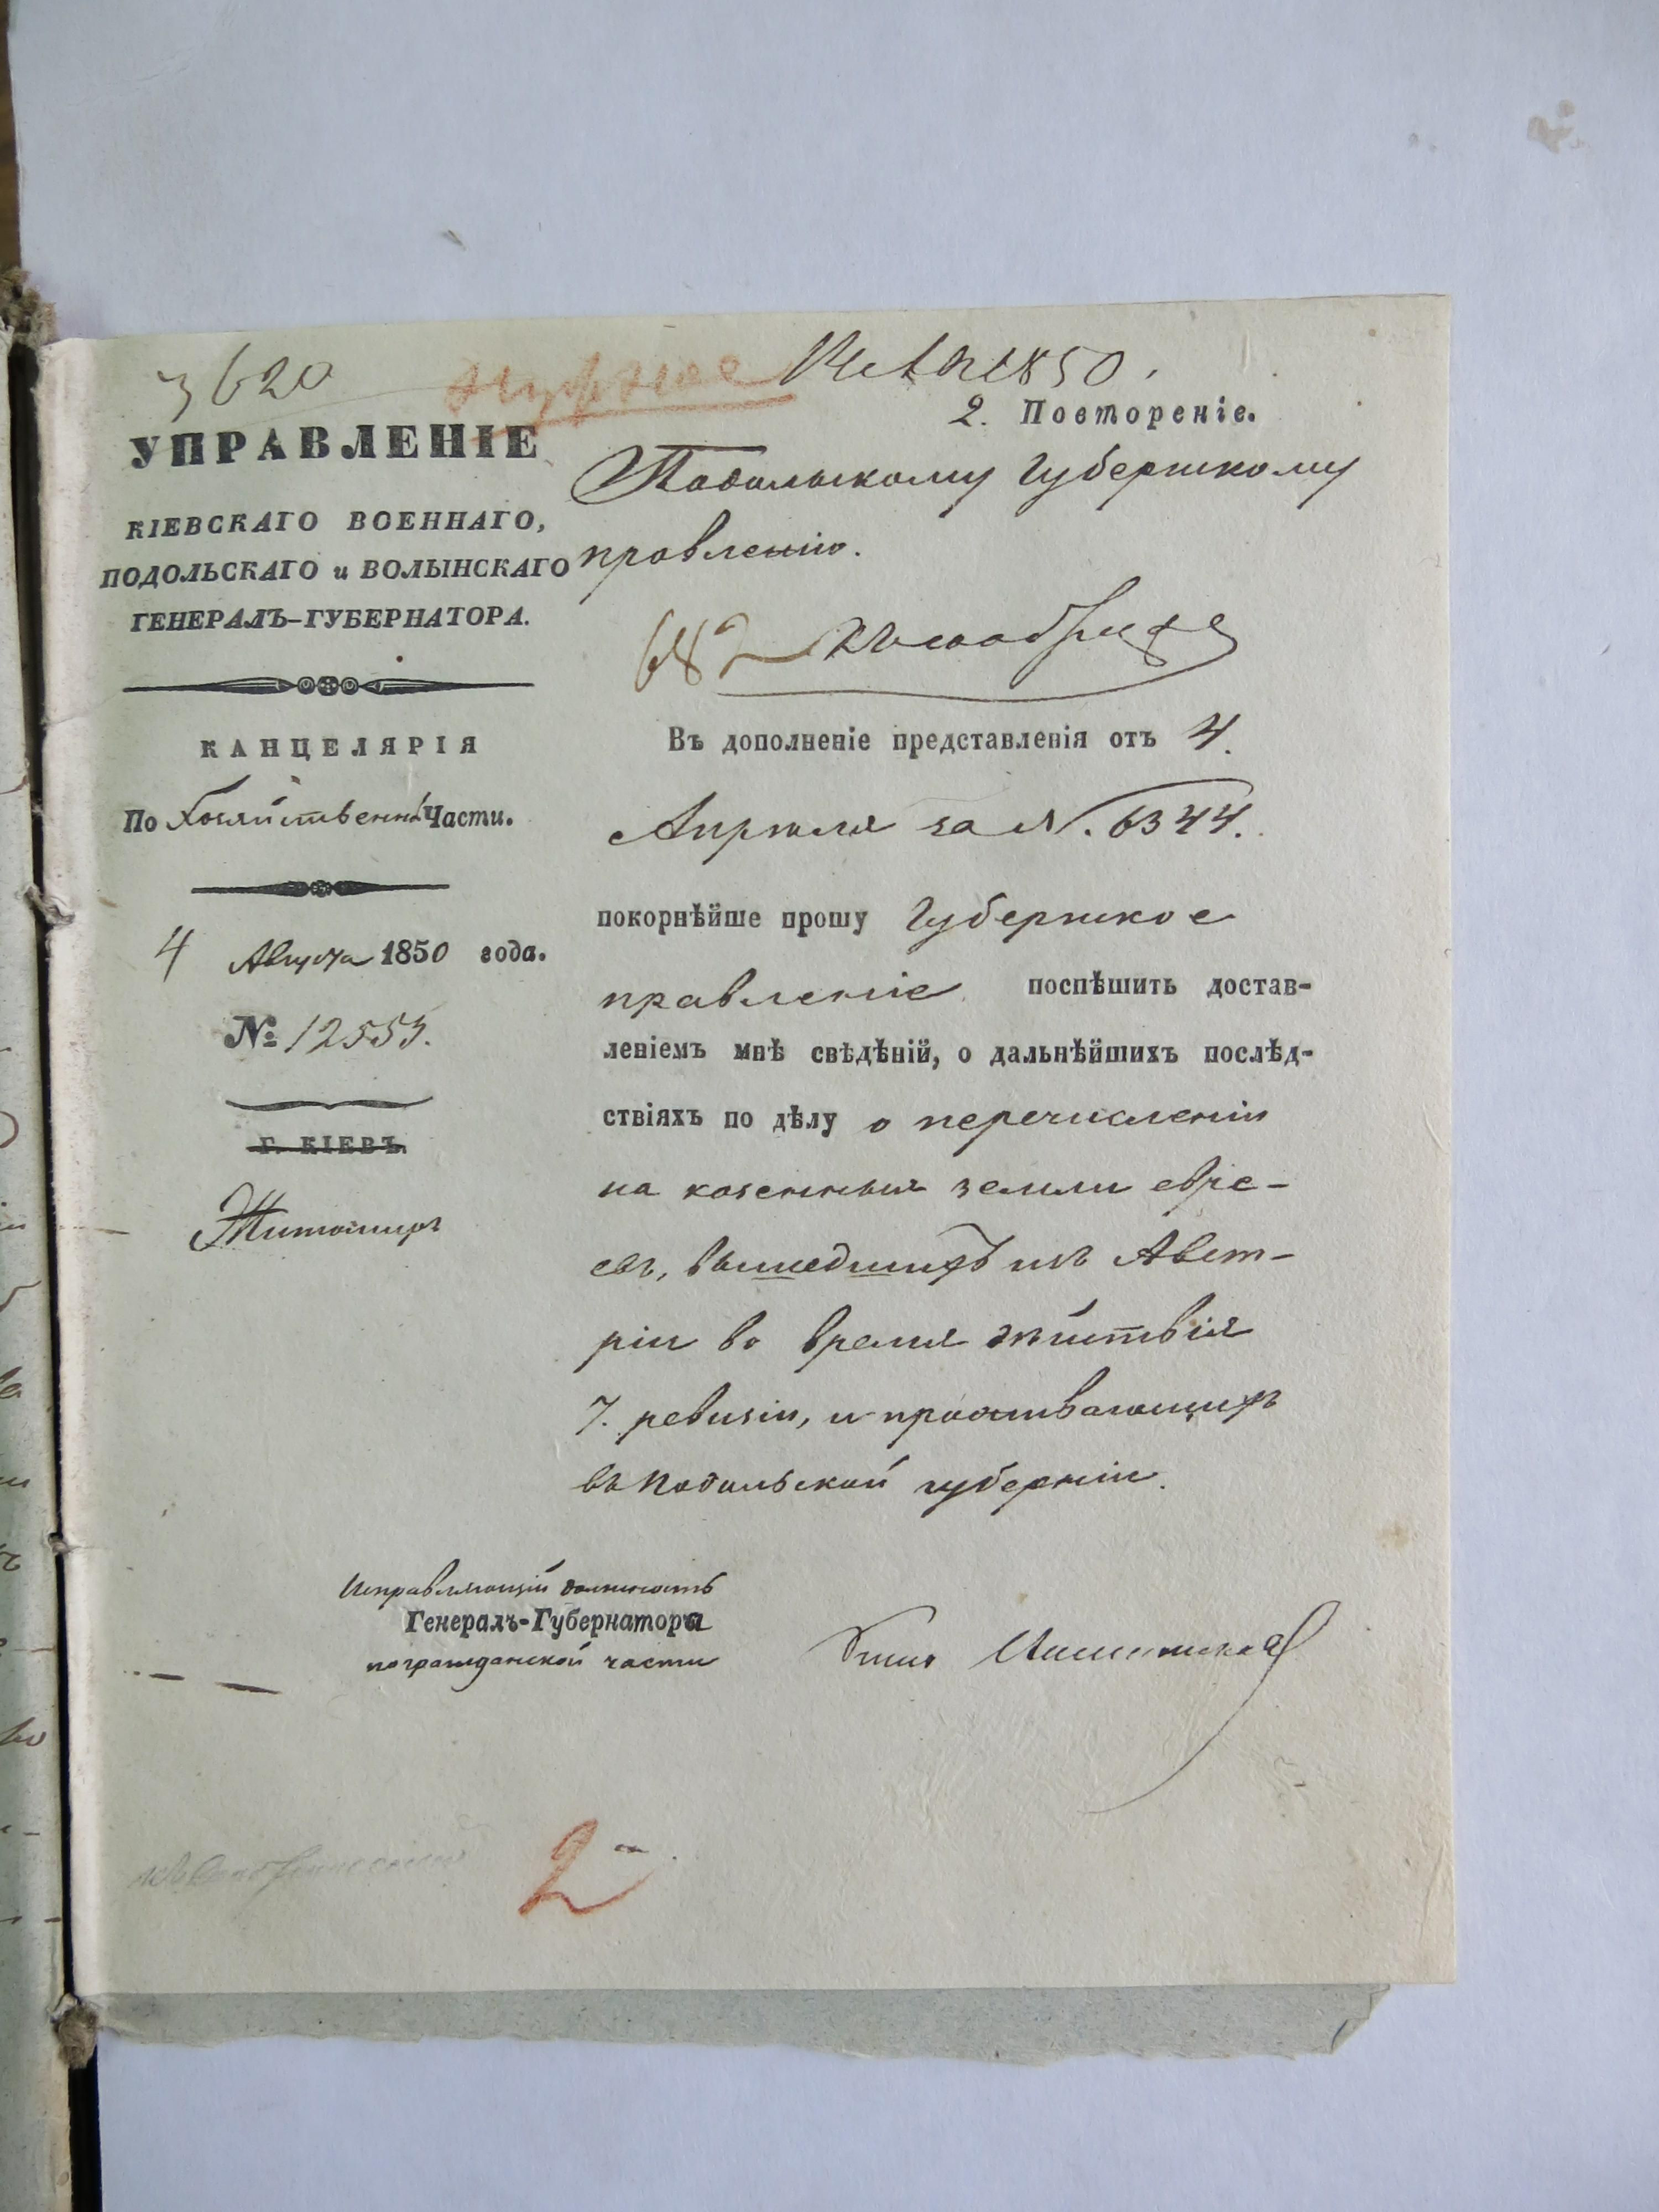 3620
нужное
1850.
2. Повтореніе.
УПРАВЛЕНІЕ
КІЕВСКАГО ВОЕННАГО,
ПОДОЛЬСКАГО и ВОЛЫНСКАГО
ГЕНЕРАЛЪ-ГУБЕРНАТОРА.
КАНЦЕЛЯРІЯ
По Хозяйственн. Части.
4 Августа 1850 года.
№ 12553.
Г. КІЕВЪ.
Житомиръ
Подольскому Губернскому
правленію.
682
Въ дополненіе представленія отъ 4.
Апреля за N. 6344.
покорнѣйше прошу Губернское
правленіе поспѣшить достав-
леніемъ мнѣ свѣдѣній, о дальнѣйшихъ послѣд-
ствіяхъ по дѣлу о перечисленіи
на казенныя земли евре-
евъ, вышедшихъ изъ Авст-
ріи во время дѣйствія
7. ревизіи, и проживающихъ
въ Подольской губерніи.
Исправляющій должность
Генералъ-Губернатора
по гражданской части
2